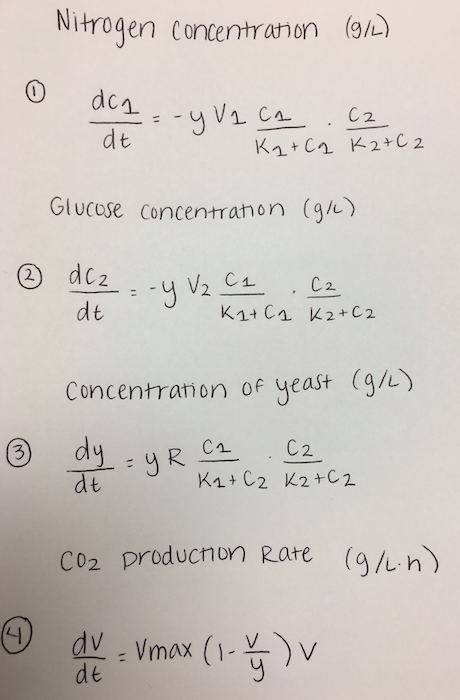 Nitrogen Concentration (g/L)
① dC1/dt = -y V1 C1/(K1+C1) · C2/(K2+C2)
Glucose Concentration (g/L)
② dC2/dt = -y V2 C1/(K1+C1) · C2/(K2+C2)
Concentration of yeast (g/L)
③ dy/dt = y R C1/(K1+C2) · C2/(K2+C2)
CO2 Production Rate (g/L·h)
④ dV/dt = Vmax (1-V/y) V